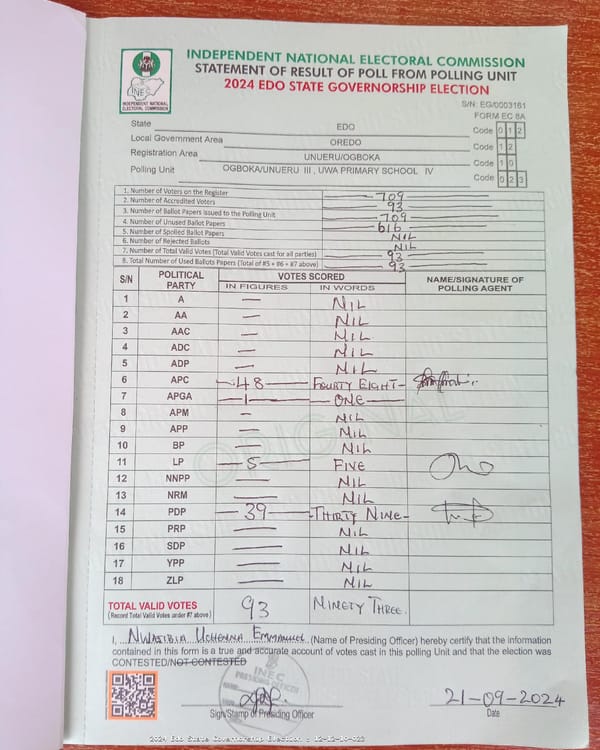 INDEPENDENT NATIONAL ELECTORAL COMMISSION
STATEMENT OF RESULT OF POLL FROM POLLING UNIT
2024 EDO STATE GOVERNORSHIP ELECTION
INEC
INDEPENDENT NATIONAL
ELECTORAL COMMISSION
S/N: EG/0003161
FORM EC 8A
State EDO Code 0 1 2
Local Government Area OREDO Code 1 2
Registration Area UNUERU/OGBOKA Code 1 0
Polling Unit OGBOKA/UNUERU III , UWA PRIMARY SCHOOL IV Code 0 2 3
1. Number of Voters on the Register 709
2. Number of Accredited Voters 93
3. Number of Ballot Papers Issued to the Polling Unit 709
4. Number of Unused Ballot Papers 616
5. Number of Spoiled Ballot Papers NIL
6. Number of Rejected Ballots NIL
7. Number of Total Valid Votes (Total Valid Votes cast for all parties) 93
8. Total Number of Used Ballots Papers (Total of #5 + #6 + #7 above) 93
S/N POLITICAL PARTY VOTES SCORED NAME/SIGNATURE OF POLLING AGENT
IN FIGURES IN WORDS
1 A — NIL
2 AA — NIL
3 AAC — NIL
4 ADC — NIL
5 ADP — NIL
6 APC 48 FOURTY EIGHT
7 APGA 1 ONE
8 APM — NIL
9 APP — NIL
10 BP — NIL
11 LP 5 FIVE
12 NNPP — NIL
13 NRM — NIL
14 PDP 39 THIRTY NINE
15 PRP — NIL
16 SDP — NIL
17 YPP — NIL
18 ZLP — NIL
ORIGINAL
TOTAL VALID VOTES 93 NINETY THREE.
(Record Total Valid Votes under #7 above)
I, NWASIBIA UCHENNA EMMANUEL (Name of Presiding Officer) hereby certify that the information
contained in this form is a true and accurate account of votes cast in this polling Unit and that the election was
CONTESTED/NOT CONTESTED
INEC
PRESIDING OFFICER
21-09-2024
Sign/Stamp of Presiding Officer Date
2024 Edo State Governorship Election : 12-12-10-023